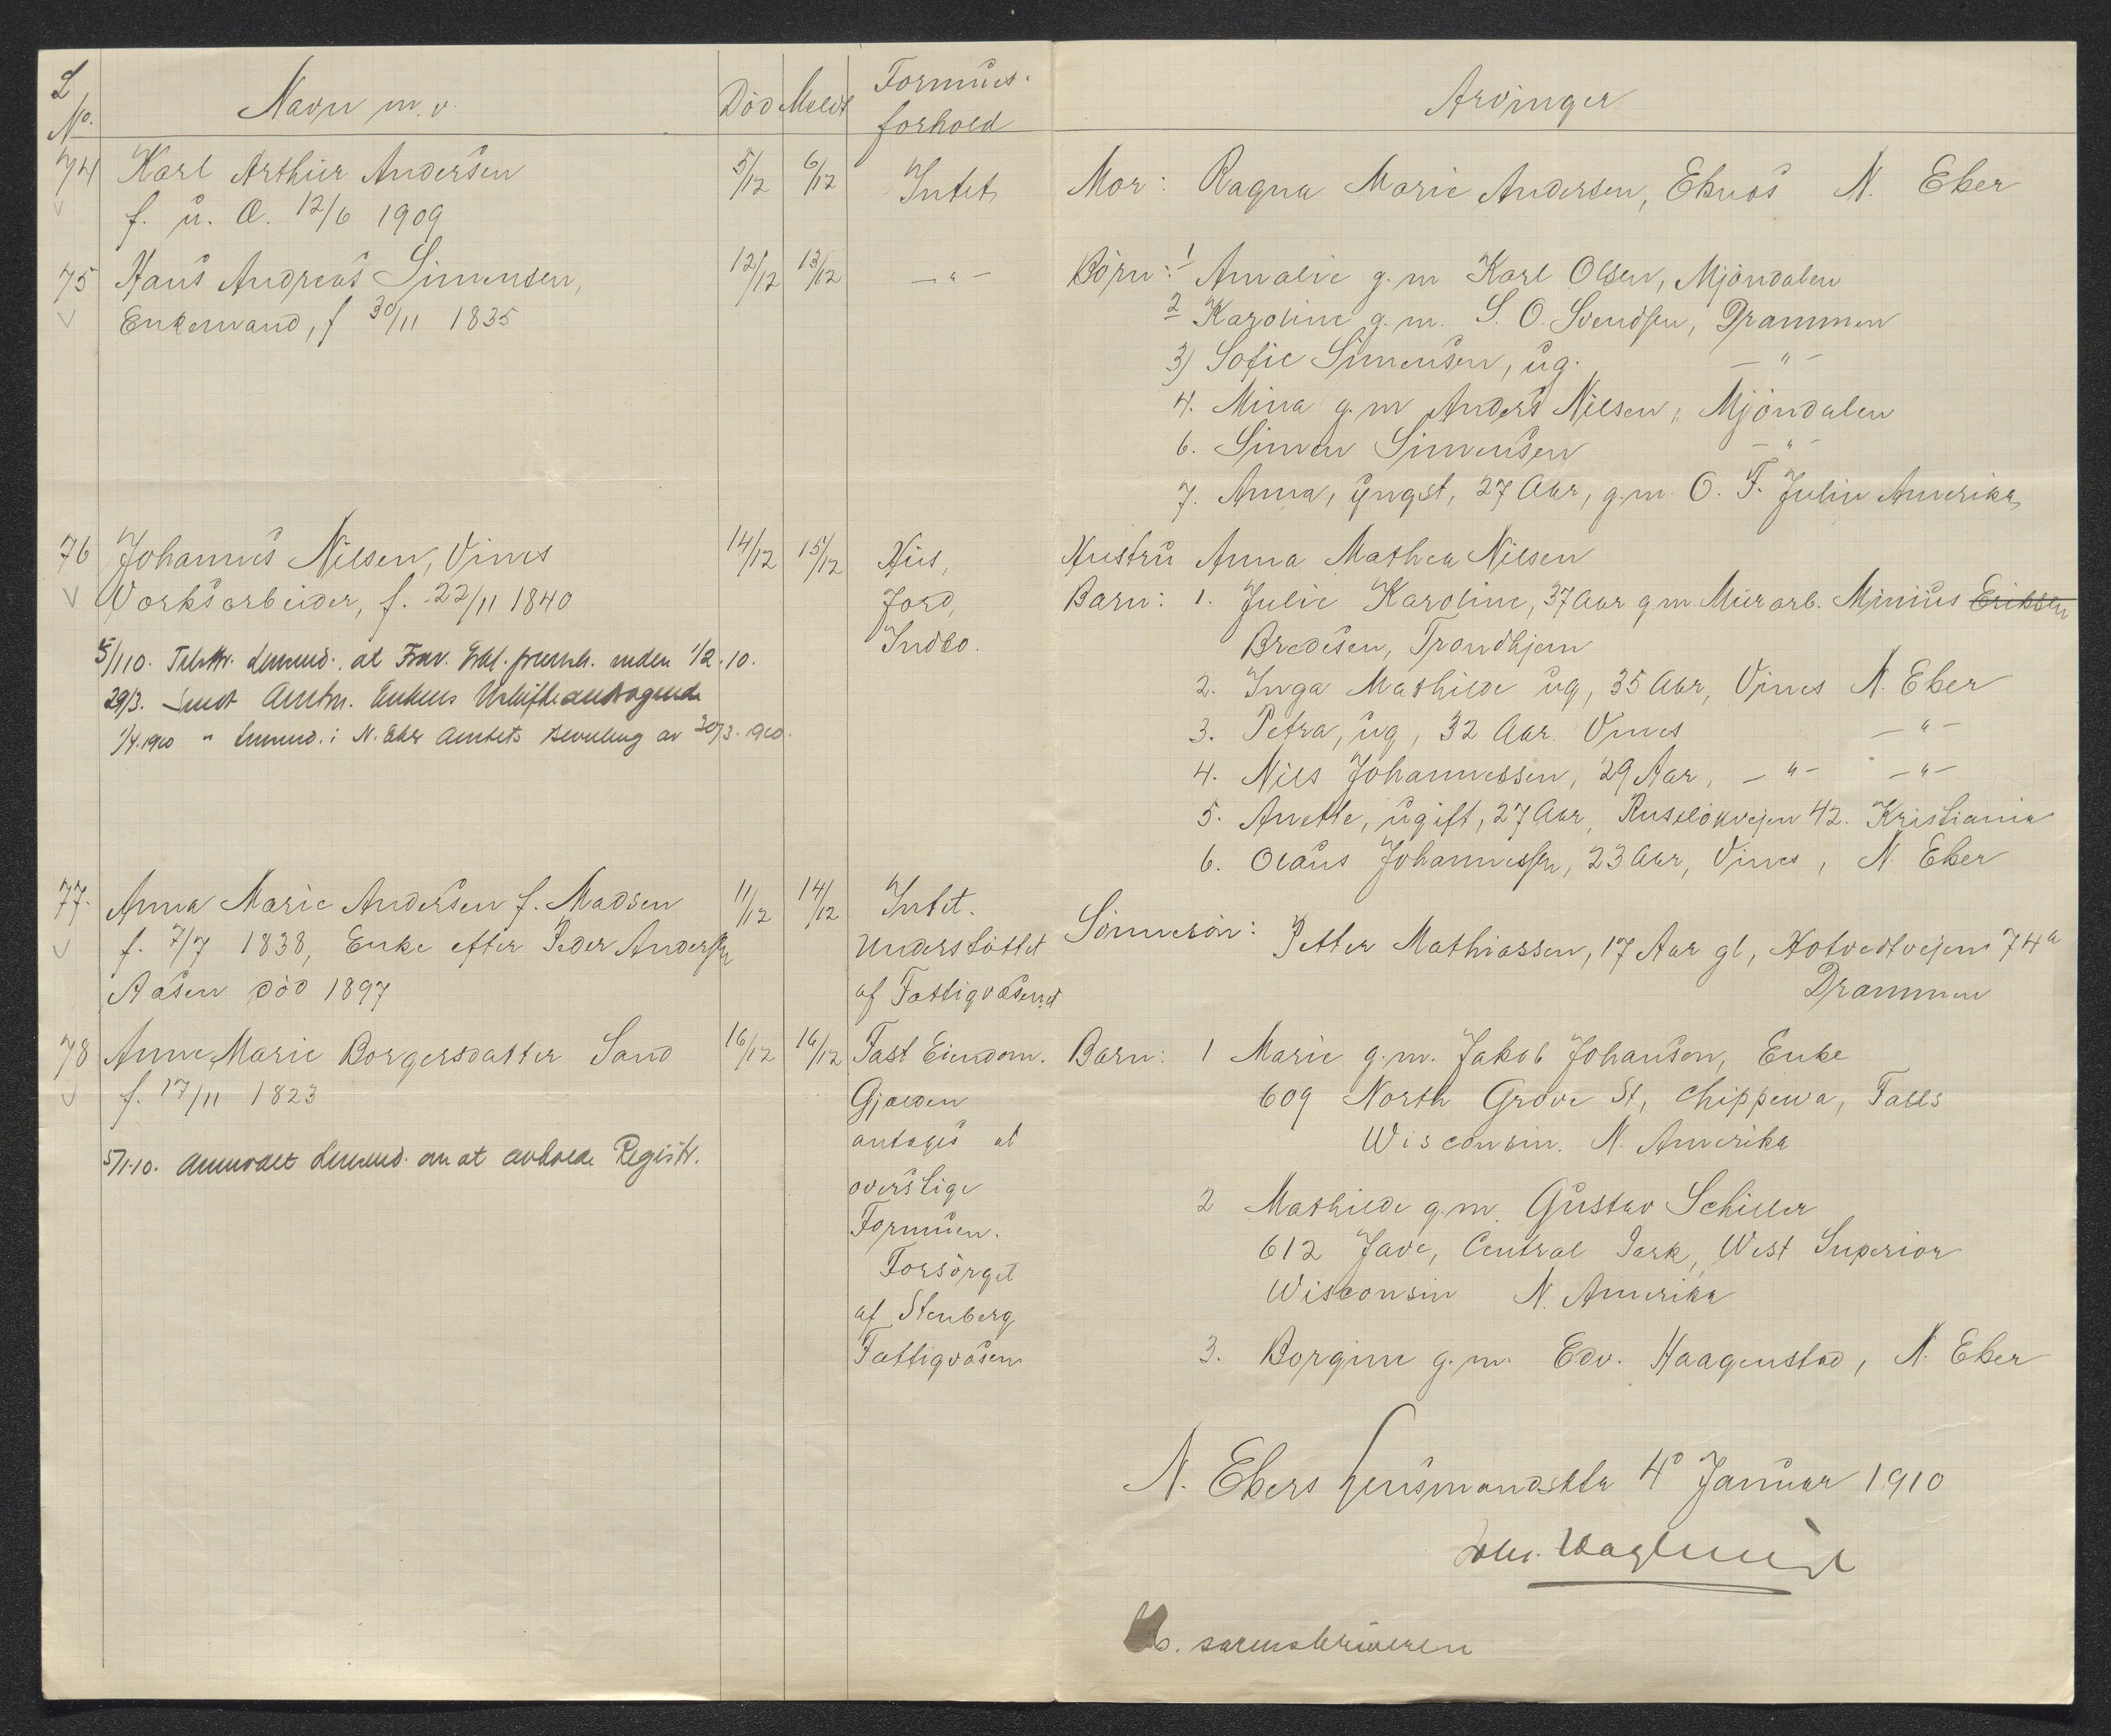 L No. Navn m.v. Död Meldt Formues- forhold Arvinger
74 Karl Arthur Andersen 5/12 6/12 Intet Mor: Ragna Marie Andersen, Eknes N. Eker
f. u. Æ. 12/6 1909
75 Hans Andreas Simensen, 12/12 13/12 —"— Börn: 1 Amalie g.m Karl Olsen, Mjöndalen
Enkemand, f 30/11 1835 2 Karoline g.m. S. O. Svendsen, Drammen
3) Sofie Simensen, ug. —"—
4. Mina g.m Anders Nilsen, Mjöndalen
6. Simen Simensen —"—
7. Anna, yngst, 27 Aar, g.m. O. F. Julin Amerika
76 Johannes Nilsen, Vines 14/12 15/12 Hus, Hustru Anna Mathea Nilsen
Værksarbeider, f. 22/11 1840 Jord, Barn: 1. Julie Karoline, 37 Aar g.m. Murarb. Minius Eriksen
Indbo. Bredesen, Trondhjem
5/1 10. at inden 1/2.10.
2. Inga Mathilde ug, 35 Aar, Vines N. Eker
29/3. Sendt Amtm. Enkens
3. Petra, ug, 32 Aar Vines —"—
1/4.1910 " i N. Eker Amtets Bevilling av 30/3.1910.
4. Nils Johannessen, 29 Aar, —"— —"—
5. Anette, ugift, 27 Aar, Ruselökveien 42. Kristiania
6. Olaus Johannessen, 23 Aar, Vines, N. Eker
77. Anna Marie Andersen f. Madsen 11/12 14/12 Intet. Sönnesön: Petter Mathiassen, 17 Aar gl, Hotvedtvejen 74a
f. 7/7 1838, Enke efter Peder Andersen Understöttet Drammen
Aasen död 1897 af Fattigvæsenet
78 Anne Marie Borgersdatter Sand 16/12 16/12 Fast Eiendom. Barn: 1 Marie g.m. Jakob Johansen, Enke
f. 17/11 1823 Gjælden 609 North Grove St, Chippewa, Falls
antages at Wisconsin. N. Amerika
5/1-10. Anmodet om at avholde Registr.
overstige 2 Mathilde g.m. Gustav Schiller
Formuen. 612 Jave, Central Park, West Superior
Forsörget Wisconsin N. Amerika
af Stenberg
Fattigvæsen 3. Borgine g.m. Edv. Haagenstad, N. Eker
N. Ekers Lensmandsbst 4d Januar 1910
Sorenskriveren